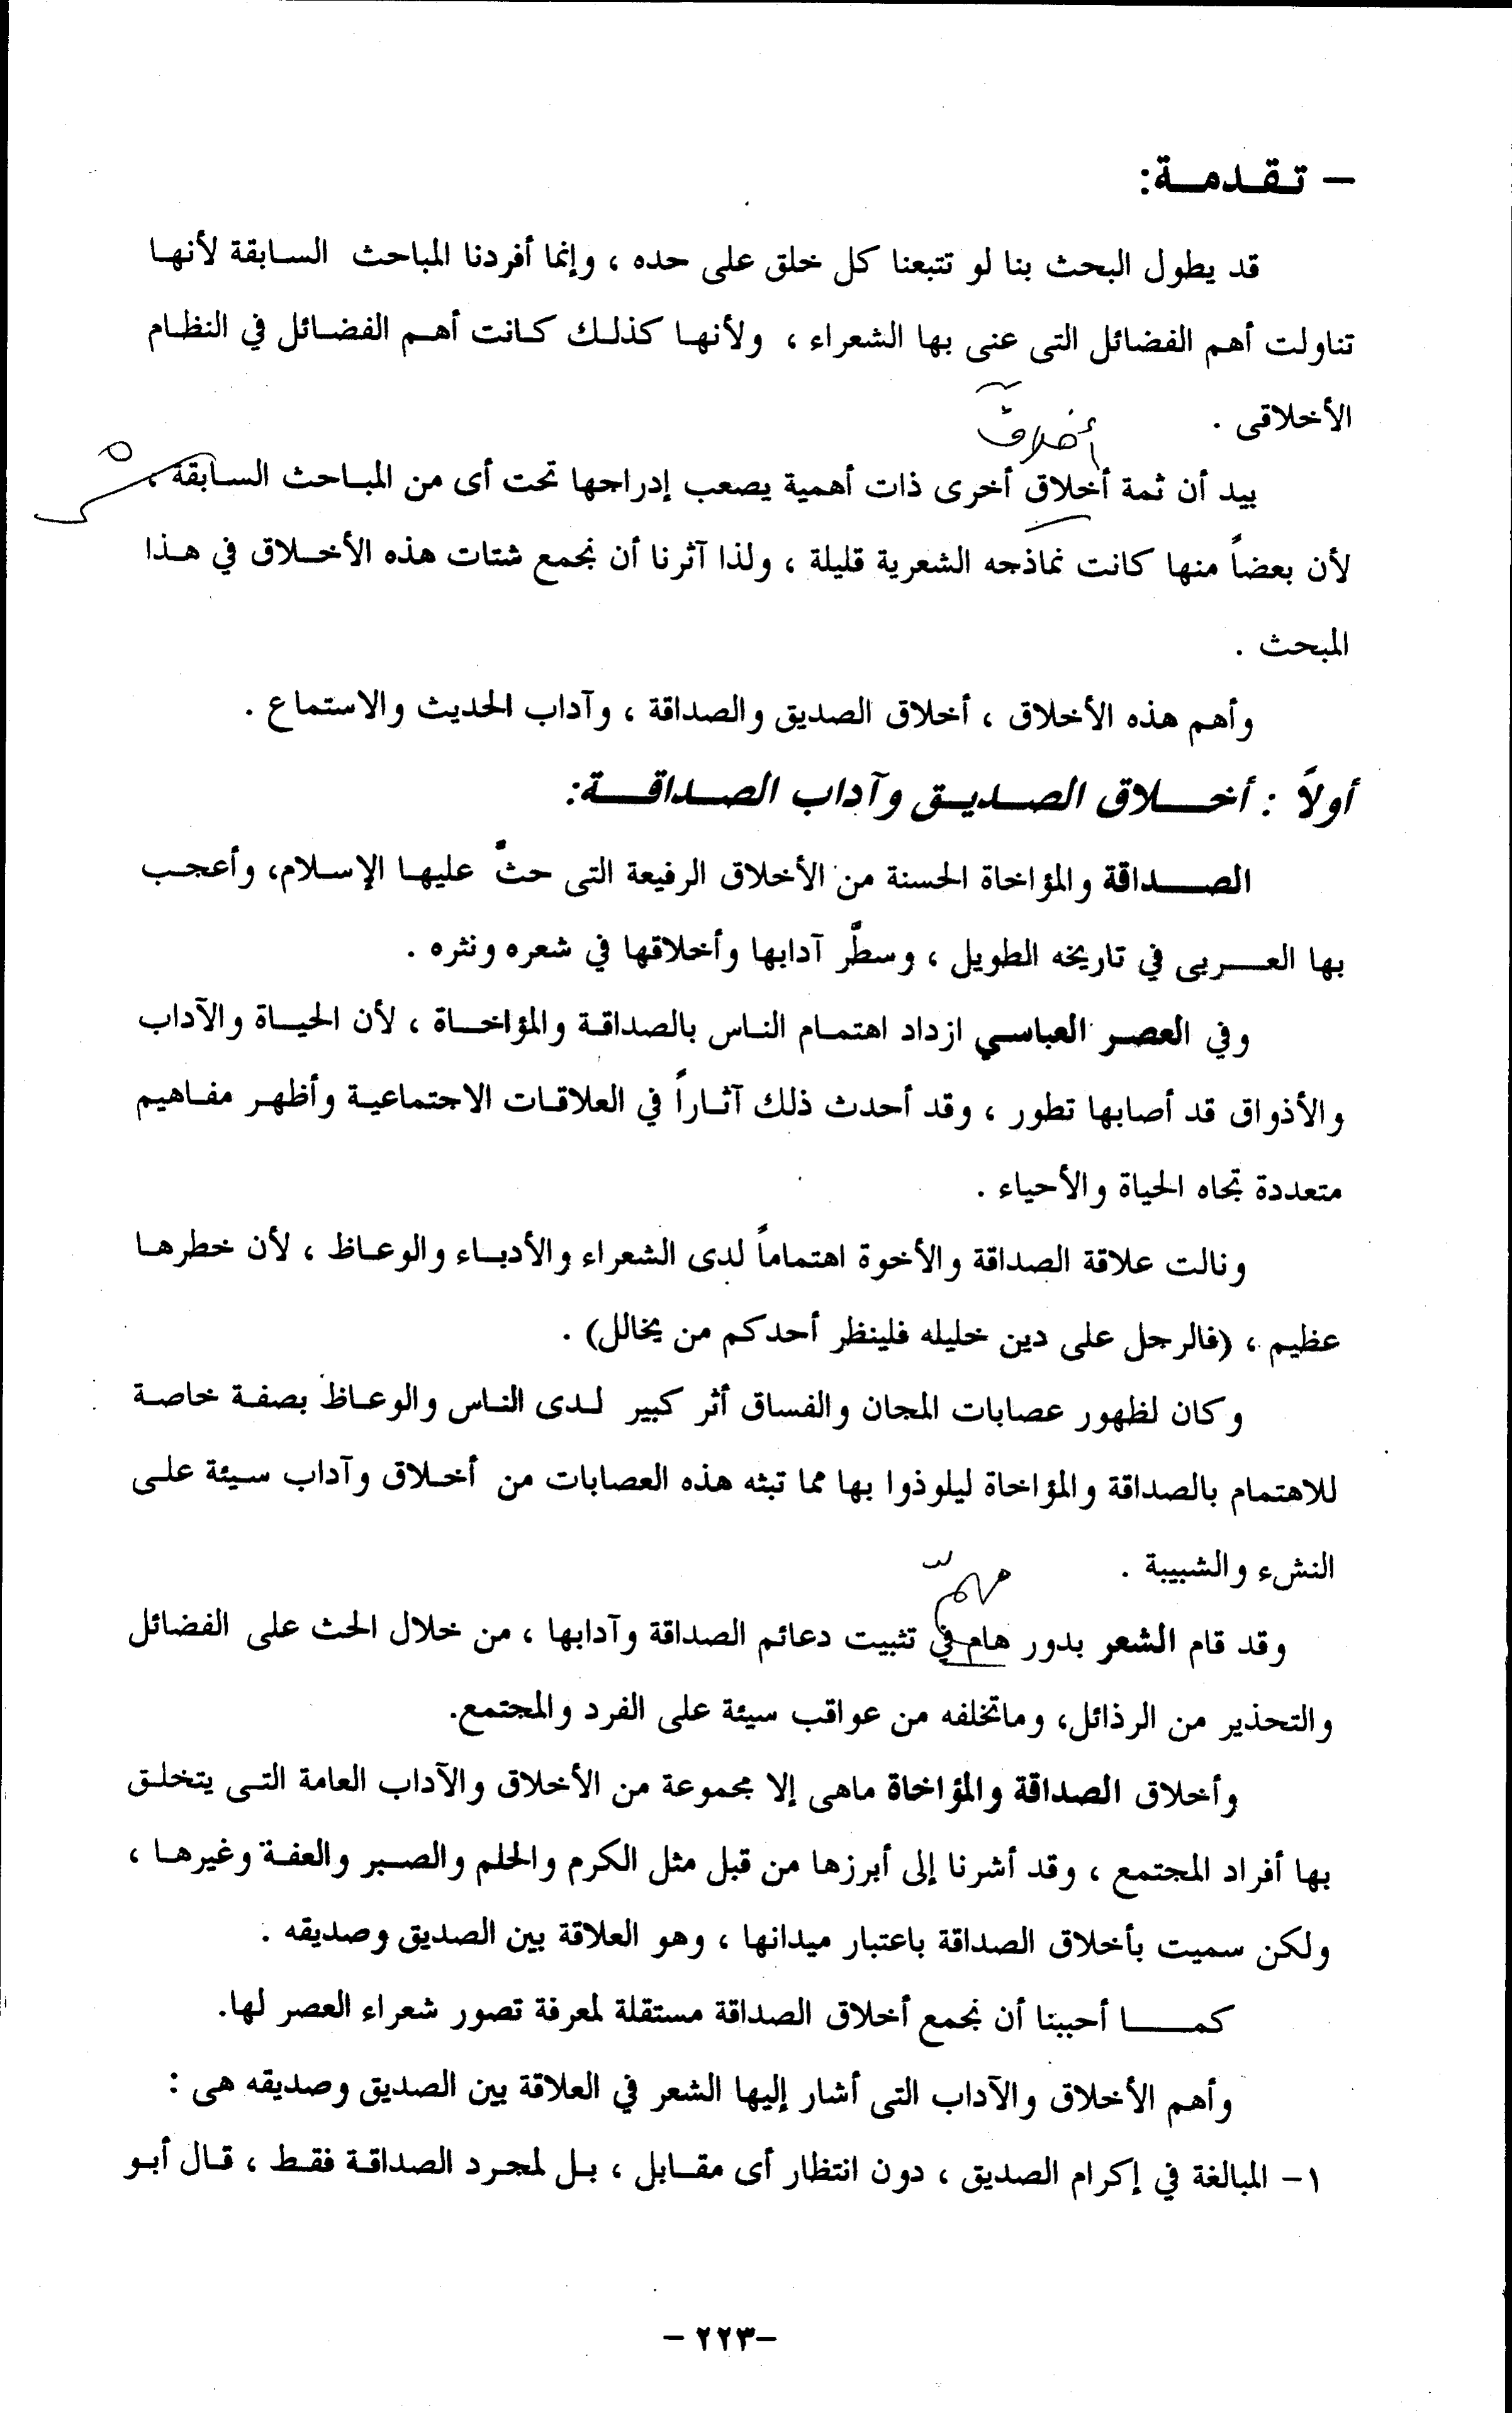 – تقدمة:
قد يطول البحث بنا لو تتبعنا كل خلق على حده ، وإنما أفردنا المباحث السابقة لأنها
تناولت أهم الفضائل التى عنى بها الشعراء ، ولأنها كذلك كانت أهم الفضائل في النظام
الأخلاقى .
أخلاق
بيد أن ثمة أخلاق أخرى ذات أهمية يصعب إدراجها تحت أى من المباحث السابقة ،
لأن بعضاً منها كانت نماذجه الشعرية قليلة ، ولذا آثرنا أن نجمع شتات هذه الأخلاق في هذا
المبحث .
وأهم هذه الأخلاق ، أخلاق الصديق والصداقة ، وآداب الحديث والاستماع .
أولاً : أخلاق الصديق وآداب الصداقة:
الصداقة والمؤاخاة الحسنة من الأخلاق الرفيعة التى حثّ عليها الإسلام، وأعجب
بها العربى في تاريخه الطويل ، وسطّر آدابها وأخلاقها في شعره ونثره .
وفي العصر العباسي ازداد اهتمام الناس بالصداقة والمؤاخاة ، لأن الحياة والآداب
والأذواق قد أصابها تطور ، وقد أحدث ذلك آثاراً في العلاقات الاجتماعية وأظهر مفاهيم
متعددة تجاه الحياة والأحياء .
ونالت علاقة الصداقة والأخوة اهتماماً لدى الشعراء والأدباء والوعاظ ، لأن خطرها
عظيم ، (فالرجل على دين خليله فلينظر أحدكم من يخالل) .
وكان لظهور عصابات المجان والفساق أثر كبير لدى الناس والوعاظ بصفة خاصة
للاهتمام بالصداقة والمؤاخاة ليلوذوا بها مما تبثه هذه العصابات من أخلاق وآداب سيئة على
النشء والشبيبة .
مهم
وقد قام الشعر بدور هام في تثبيت دعائم الصداقة وآدابها ، من خلال الحث على الفضائل
والتحذير من الرذائل، وماتخلفه من عواقب سيئة على الفرد والمجتمع.
وأخلاق الصداقة والمؤاخاة ماهى إلا مجموعة من الأخلاق والآداب العامة التى يتخلق
بها أفراد المجتمع ، وقد أشرنا إلى أبرزها من قبل مثل الكرم والحلم والصبر والعفة وغيرها ،
ولكن سميت بأخلاق الصداقة باعتبار ميدانها ، وهو العلاقة بين الصديق وصديقه .
كما أحببنا أن نجمع أخلاق الصداقة مستقلة لمعرفة تصور شعراء العصر لها.
وأهم الأخلاق والآداب التى أشار إليها الشعر في العلاقة بين الصديق وصديقه هى :
١- المبالغة في إكرام الصديق ، دون انتظار أى مقابل ، بل لمجرد الصداقة فقط ، قال أبو
-٢٢٣-